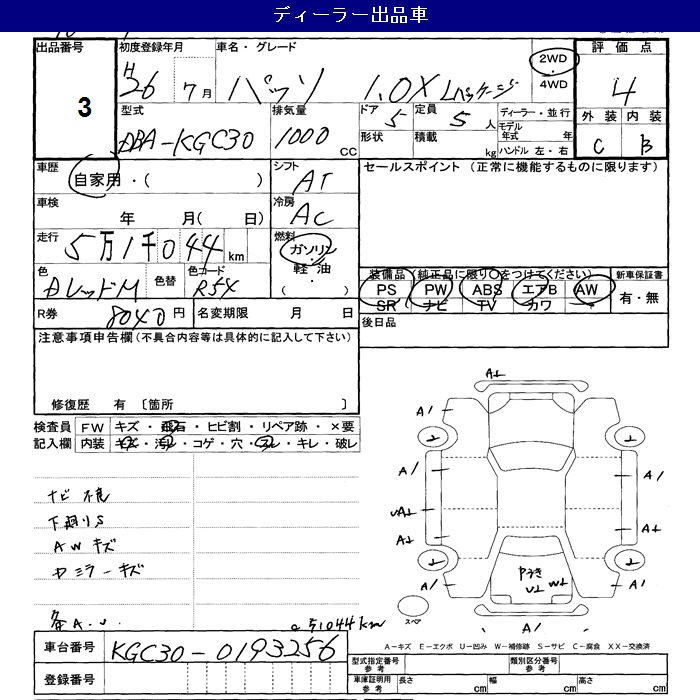 ディーラー出品車
出品番号
3
初度登録年月
H26 7月
車名・グレード
パッソ 1.0X Lパッケージ
2WD
4WD
評価点
4
外装 内装
C B
型式
DBA-KGC30
排気量
1000 cc
ドア 5
形状
定員 5 人
積載 kg
ディーラー・並行
モデル年式 年
ハンドル 左・右
車歴
自家用・( )
シフト
AT
セールスポイント (正常に機能するものに限ります)
車検
年 月( 日)
冷房
AC
走行
5万1千044km
燃料
ガソリン
軽油
( ・ )
色
DレッドM
色替
色コード
R54
装備品 (純正品に限り○をつけてください)
PS PW ABS エアB AW
SR ナビ TV カワ
新車保証書
有・無
R券 8040円
名変期限 月 日
後日品
注意事項申告欄 (不具合内容等は具体的に記入して下さい)
修復歴 有 〔箇所 〕
検査員 FW キズ・飛石・ヒビ割・リペア跡・×要
記入欄 内装 キズ・汚れ・コゲ・穴・スレ・キレ・破レ
ナビ不良
下廻りS
AWキズ
Dミラーキズ
各A.U
51044km
A⊥
A/ A/
A/ A/
UA⊥ A⊥
A⊥
A/ A/
Pうき
U⊥ W⊥
A/
スペア
A-キズ E-エクボ U-凹み W-補修跡 S-サビ C-腐食 XX-交換済
車台番号 KGC30-0193256
登録番号
型式指定番号 参考
類別区分番号 参考
車庫証明用 参考
長さ cm
幅 cm
高さ cm